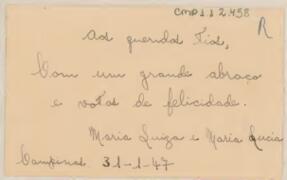 CMP 1.1 2.438
R
Às queridas Tias,
Com um grande abraço
e votos de felicidade.
Maria Luiza e Maria Lucia
Campinas 31-1-47